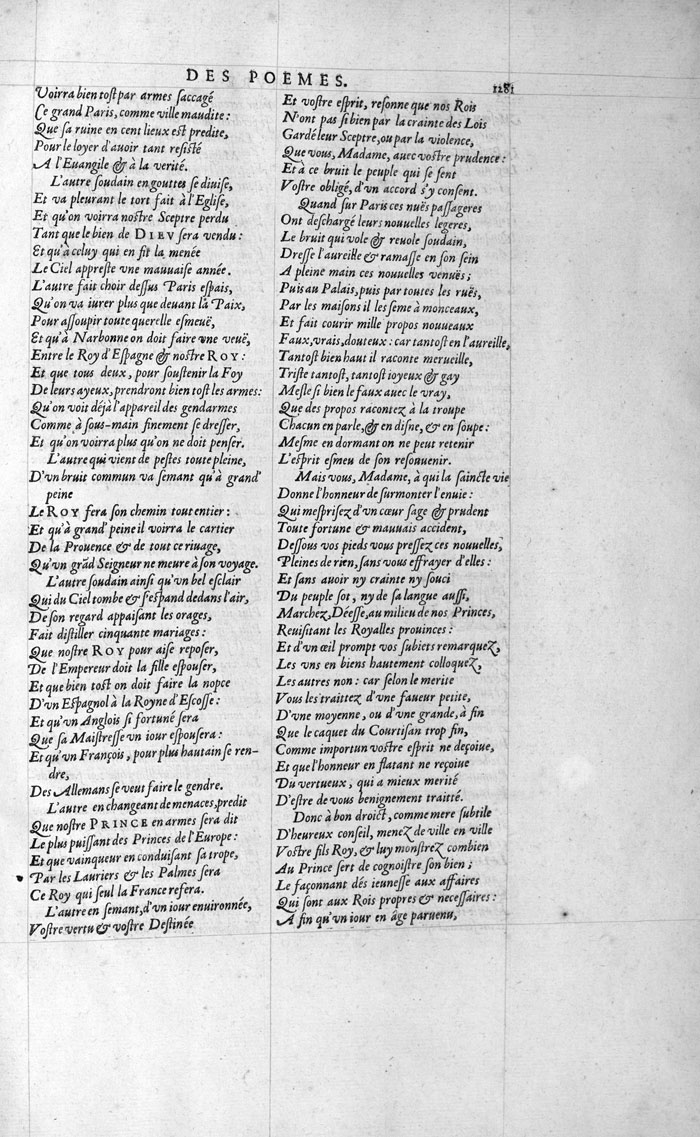 DES POEMES.
1281
Voirra bien tost par armes saccagé
Ce grand Paris, comme ville maudite:
Que sa ruine en cent lieux est predite,
Pour le loyer d'auoir tant resisté
A l'Euangile & à la verité.
L'autre soudain en gouttes se diuise,
Et va pleurant le tort fait à l'Eglise,
Et qu'on voirra nostre Sceptre perdu
Tant que le bien de DIEV sera vendu:
Et qu'à celuy qui en fit la menée
Le Ciel appreste vne mauuaise année.
L'autre fait choir dessus Paris espais,
Qu'on va iurer plus que deuant la Paix,
Pour assoupir toute querelle esmeuë,
Et qu'à Narbonne on doit faire vne veuë,
Entre le Roy d'Espagne & nostre ROY:
Et que tous deux, pour soustenir la Foy
De leurs ayeux, prendront bien tost les armes:
Qu'on voit déjà l'appareil des gendarmes
Comme à sous-main finement se dresser,
Et qu'on voirra plus qu'on ne doit penser.
L'autre qui vient de pestes toute pleine,
D'vn bruit commun va semant qu'à grand'
peine
Le ROY fera son chemin tout entier:
Et qu'à grand' peine il voirra le cartier
De la Prouence & de tout ce riuage,
Qu'vn grãd Seigneur ne meure à son voyage.
L'autre soudain ainsi qu'vn bel esclair
Qui du Ciel tombe & s'espand dedans l'air,
De son regard appaisant les orages,
Fait distiller cinquante mariages:
Que nostre ROY pour aise reposer,
De l'Empereur doit la fille espouser,
Et que bien tost on doit faire la nopce
D'vn Espagnol à la Royne d'Escosse:
Et qu'vn Anglois si fortuné sera
Que sa Maistresse vn iour espousera:
Et qu'vn François, pour plus hautain se ren-
dre,
Des Allemans se veut faire le gendre.
L'autre en changeant de menaces, predit
Que nostre PRINCE en armes sera dit
Le plus puissant des Princes de l'Europe:
Et que vainqueur en conduisant sa trope,
Par les Lauriers & les Palmes sera
Ce Roy qui seul la France refera.
L'autre en semant, d'vn iour enuironnée,
Vostre vertu & vostre Destinée
Et vostre esprit, resonne que nos Rois
N'ont pas si bien par la crainte des Lois
Gardé leur Sceptre, ou par la violence,
Que vous, Madame, auec vostre prudence:
Et à ce bruit le peuple qui se sent
Vostre obligé, d'vn accord s'y consent.
Quand sur Paris ces nuës passageres
Ont deschargé leurs nouuelles legeres,
Le bruit qui vole & reuole soudain,
Dresse l'aureille & ramasse en son sein
A pleine main ces nouuelles venuës;
Puis au Palais, puis par toutes les ruës,
Par les maisons il les seme à monceaux,
Et fait courir mille propos nouueaux
Faux, vrais, douteux: car tantost en l'aureille,
Tantost bien haut il raconte merueille,
Triste tantost, tantost ioyeux & gay
Mesle si bien le faux auec le vray,
Que des propos racontez à la troupe
Chacun en parle, & en disne, & en soupe:
Mesme en dormant on ne peut retenir
L'esprit esmeu de son resouuenir.
Mais vous, Madame, à qui la saincte vie
Donne l'honneur de surmonter l'enuie:
Qui mesprisez d'vn cœur sage & prudent
Toute fortune & mauuais accident,
Dessous vos pieds vous pressez ces nouuelles,
Pleines de rien, sans vous effrayer d'elles:
Et sans auoir ny crainte ny souci
Du peuple sot, ny de sa langue aussi,
Marchez, Déesse, au milieu de nos Princes,
Reuisitant les Royalles prouinces:
Et d'vn œil prompt vos subiets remarquez,
Les vns en biens hautement colloquez,
Les autres non: car selon le merite
Vous les traittez d'vne faueur petite,
D'vne moyenne, ou d'vne grande, à fin
Que le caquet du Courtisan trop fin,
Comme importun vostre esprit ne deçoiue,
Et que l'honneur en flatant ne reçoiue
Du vertueux, qui a mieux merité
D'estre de vous benignement traitté.
Donc à bon droict, comme mere subtile
D'heureux conseil, menez de ville en ville
Vostre fils Roy, & luy monstrez combien
Au Prince sert de cognoistre son bien;
Le façonnant dés ieunesse aux affaires
Qui sont aux Rois propres & necessaires:
A fin qu'vn iour en âge paruenu,